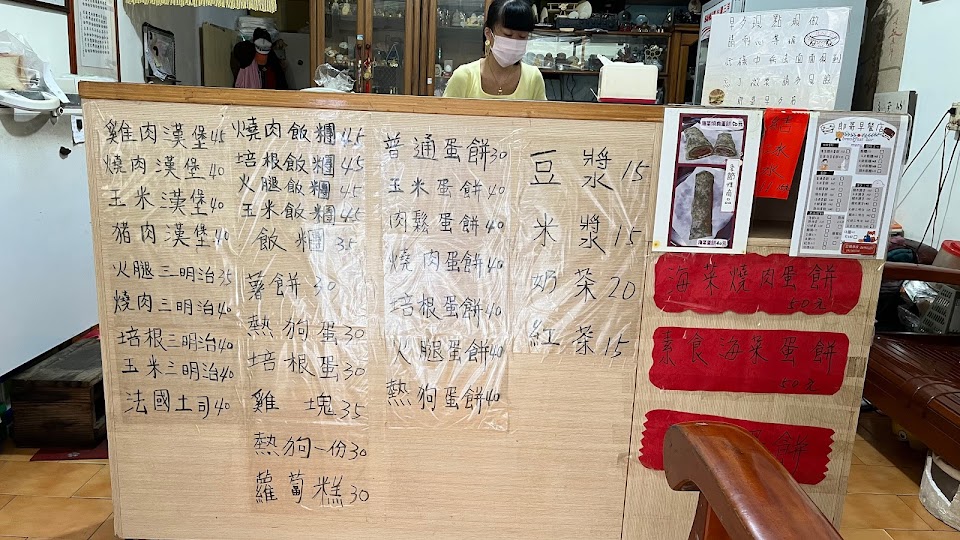 雞肉漢堡45
燒肉漢堡40
玉米漢堡40
豬肉漢堡40
火腿三明治35
燒肉三明治40
培根三明治40
玉米三明治40
法國土司40
燒肉飯糰45
培根飯糰45
火腿飯糰45
玉米飯糰45
飯糰35
薯餅30
熱狗蛋30
培根蛋30
雞塊35
熱狗一份30
蘿蔔糕30
普通蛋餅30
玉米蛋餅40
肉鬆蛋餅40
燒肉蛋餅40
培根蛋餅40
火腿蛋餅40
熱狗蛋餅40
豆漿15
米漿15
奶茶20
紅茶15
海菜燒肉蛋餅
50元
素食海菜蛋餅
50元
餅